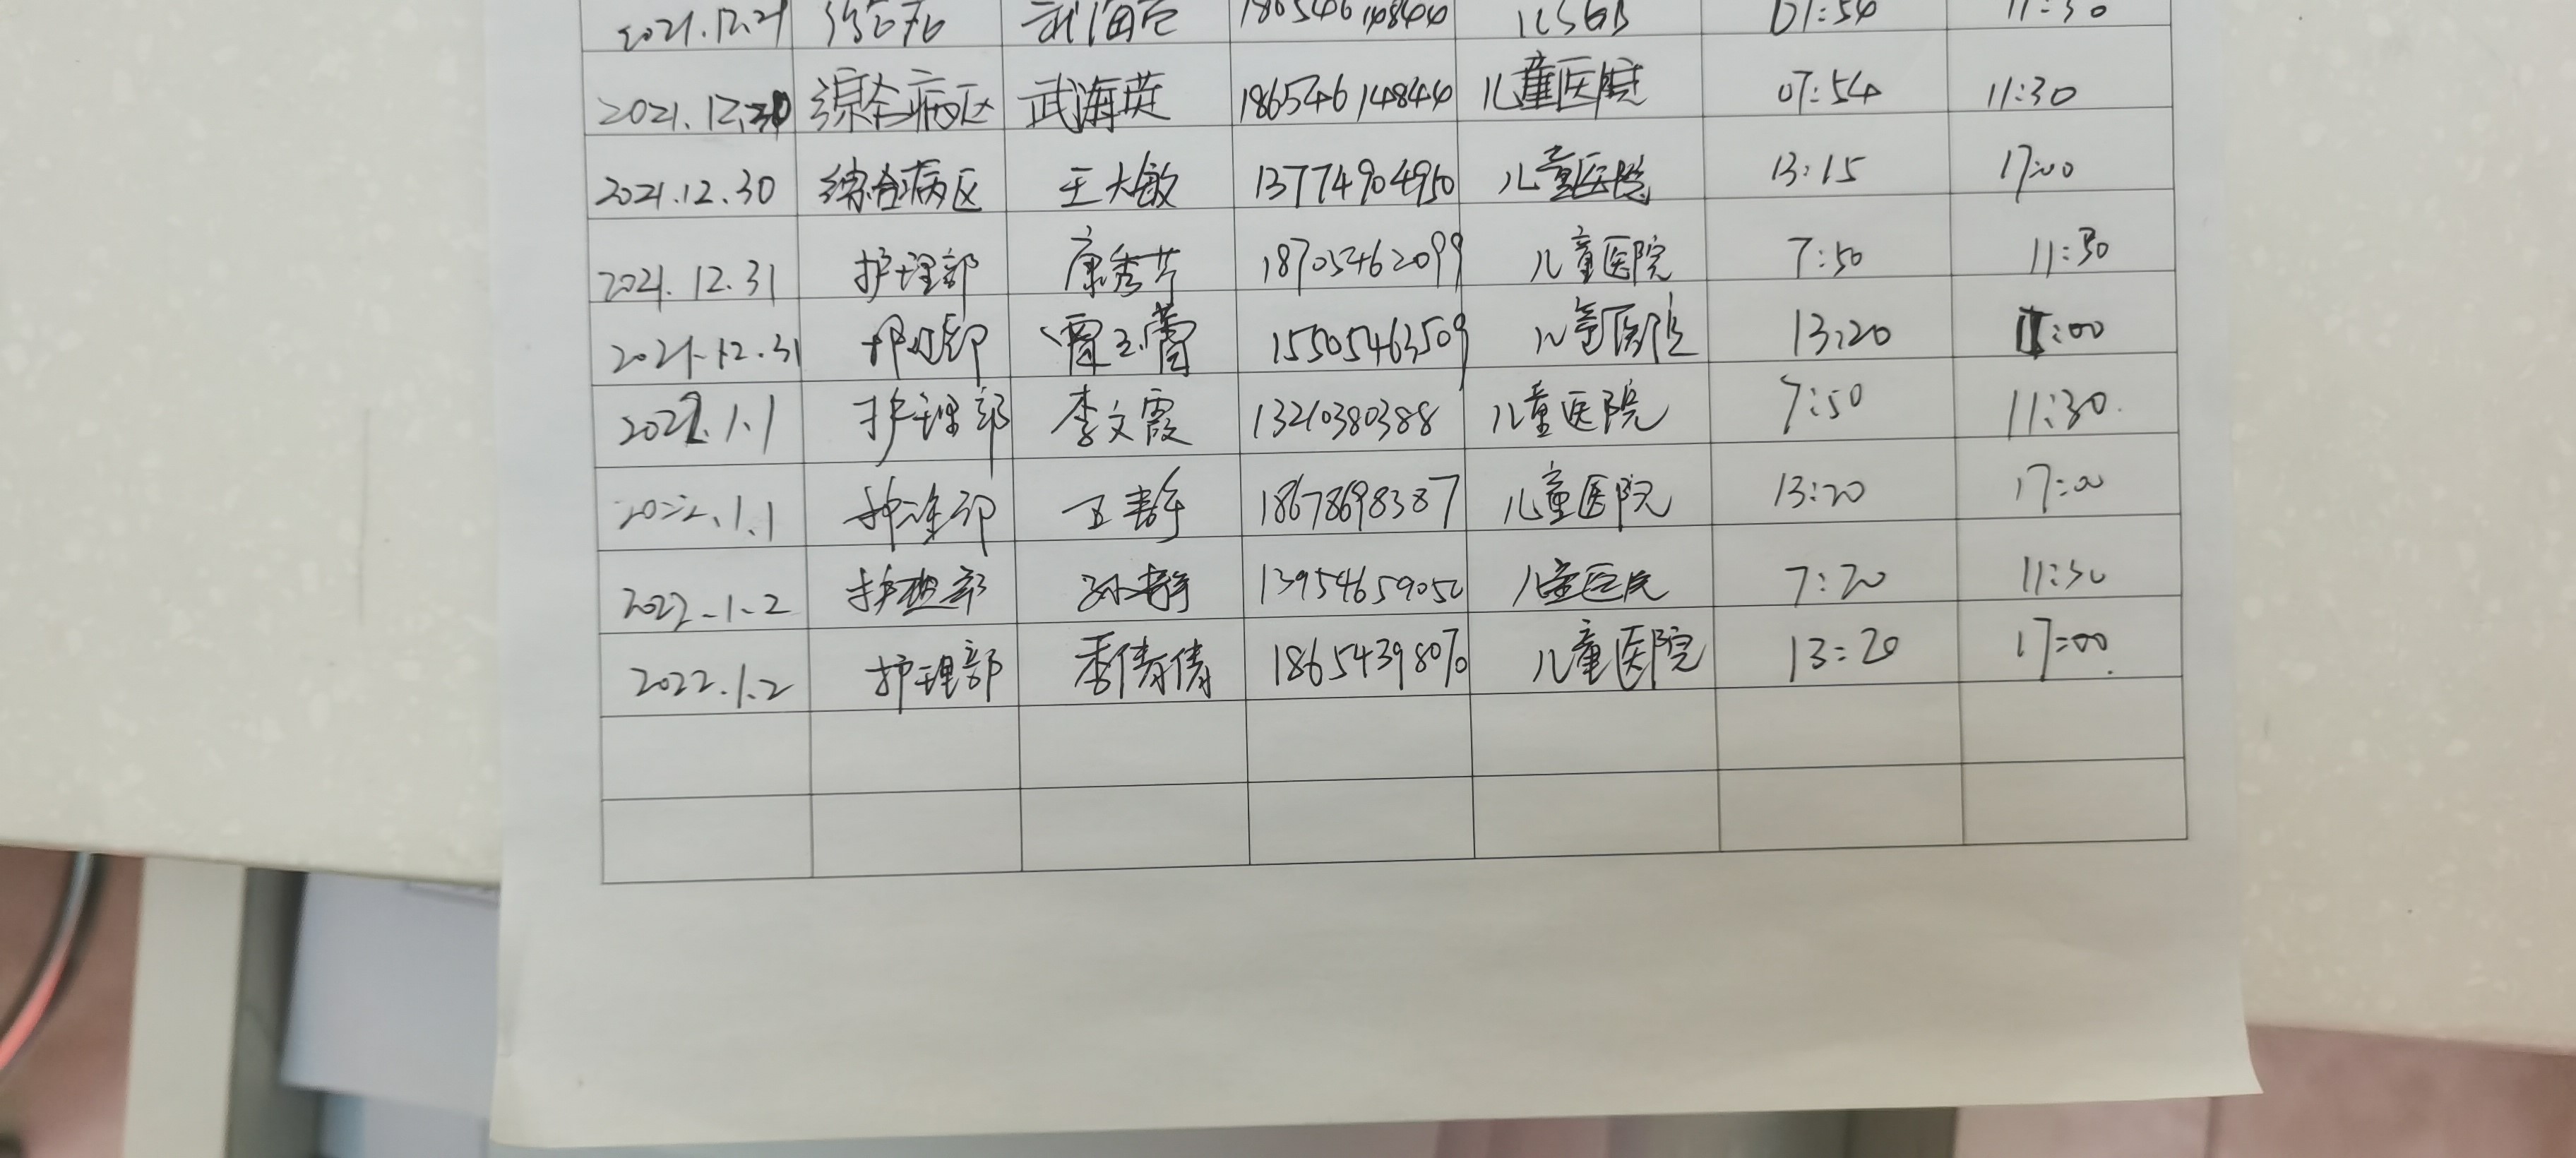 2021.12.29 07:54 11:30
2021.12.30 综合病区 武海英 18654614844 儿童医院 07:54 11:30
2021.12.30 综合病区 王大敏 13774904950 儿童医院 13:15 17:00
2021.12.31 护理部 康秀芹 18705462099 儿童医院 7:50 11:30
2021.12.31 护理部 15505463509 儿童医院 13:20 :00
2022.1.1 护理部 李文霞 13210380388 儿童医院 7:50 11:30
2022.1.1 护理部 王静 18678698387 儿童医院 13:20 17:00
2022.1.2 护理部 孙静 13954659050 儿童医院 7:20 11:30
2022.1.2 护理部 季倩倩 18654398070 儿童医院 13:20 17:00